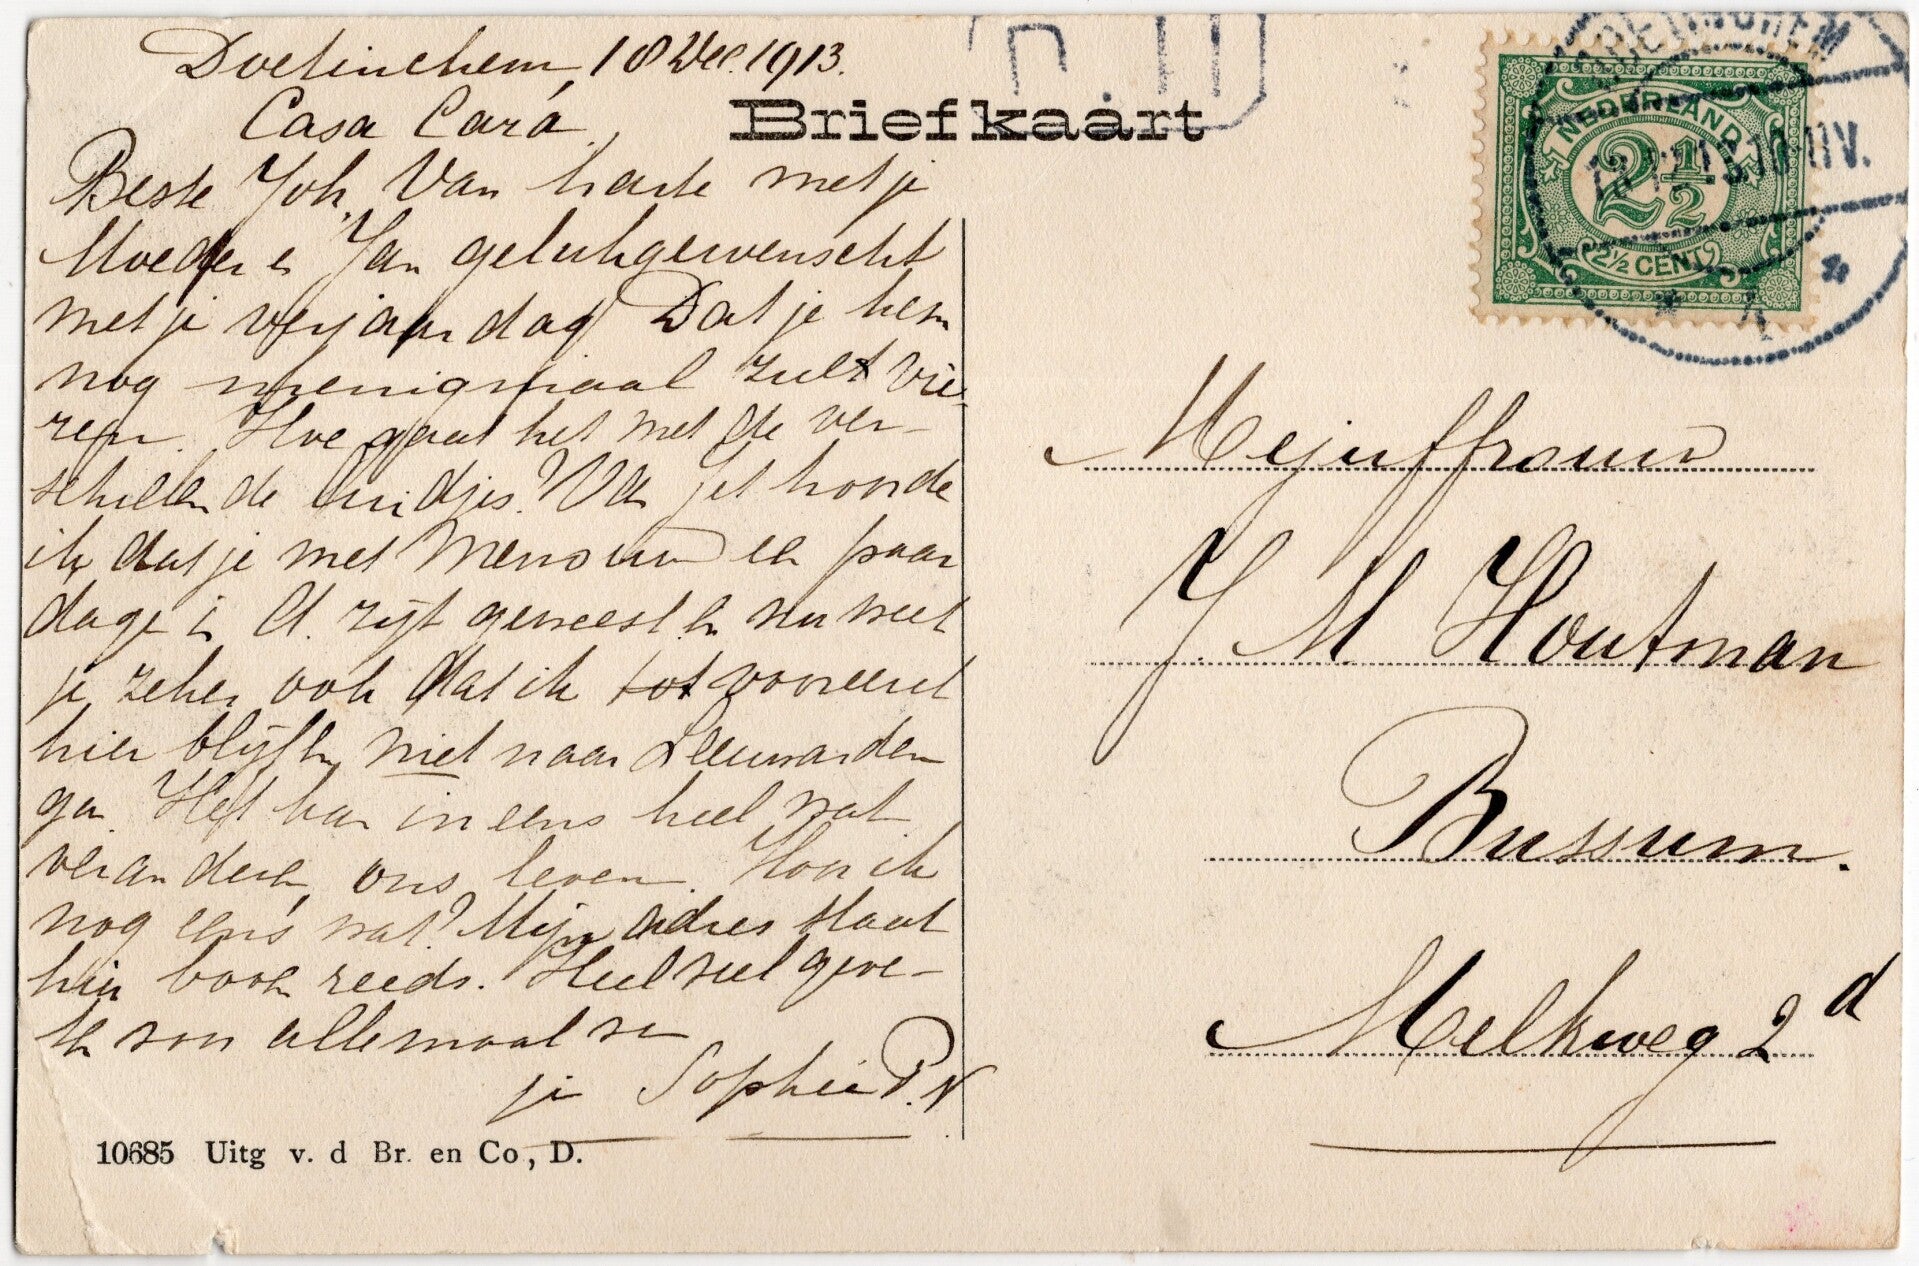 Doetinchem, 18 Dec. 1913.
Casa Cara,
Briefkaart
Beste Joh, Van harte met je
Moeder en Jan gelukgewenscht
met je verjaardag Dat je hem
nog menigmaal zult vie-
ren. Hoe gaat het met de ver-
schillende luidjes? Van Jet hoorde
ik dat je met Mevrouw een paar
dage in A. zijt geweest en nu weet
je zeker ook dat ik tot vooreerst
hier blijf en niet naar Leeuwarden
ga. Het kan ineens heel wat
veranderen, ons leven. Hoor ik
nog eens wat? Mijn adres staat
hier boven reeds. Heel veel groe-
ten voor allemaal van
je Sophie P. N
10685 Uitg v. d Br. en Co, D.
NEDERLAND
2½
2½ CENT
DOETINCHEM
Mejuffrouw
J. M. Houtman
Bussum.
Melkweg 2d